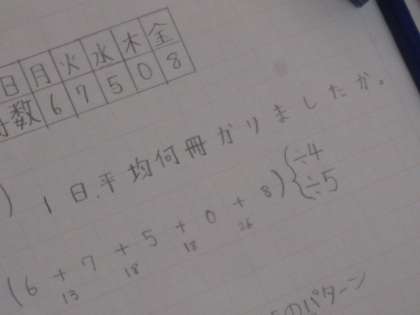 日 月 火 水 木 金
数 6 7 5 0 8
) 1日平均何冊かりましたか。
(6 + 7 + 5 + 0 + 8) { ÷4
÷5
13 18 18 26
のパターン